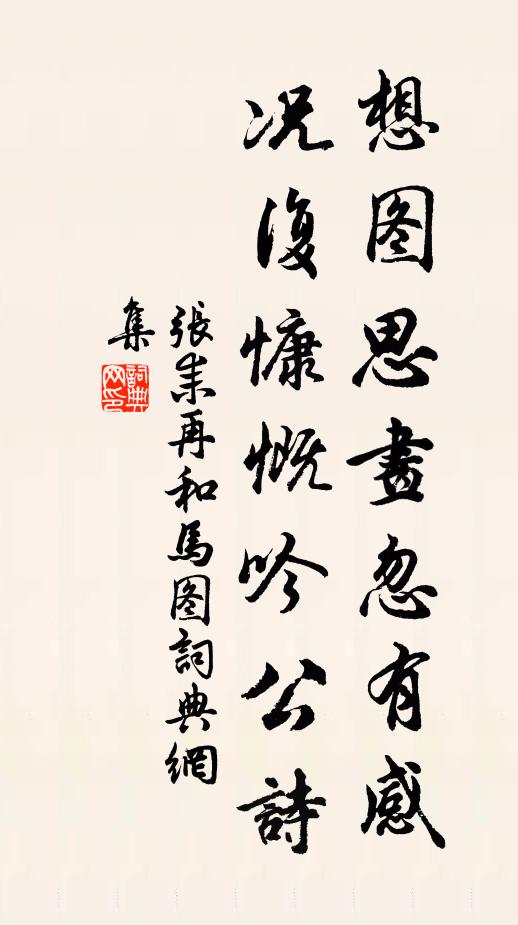 想图思畫忽有感
况復慷慨吟公詩
張耒再和馬图詞典網
集
詞典
网印